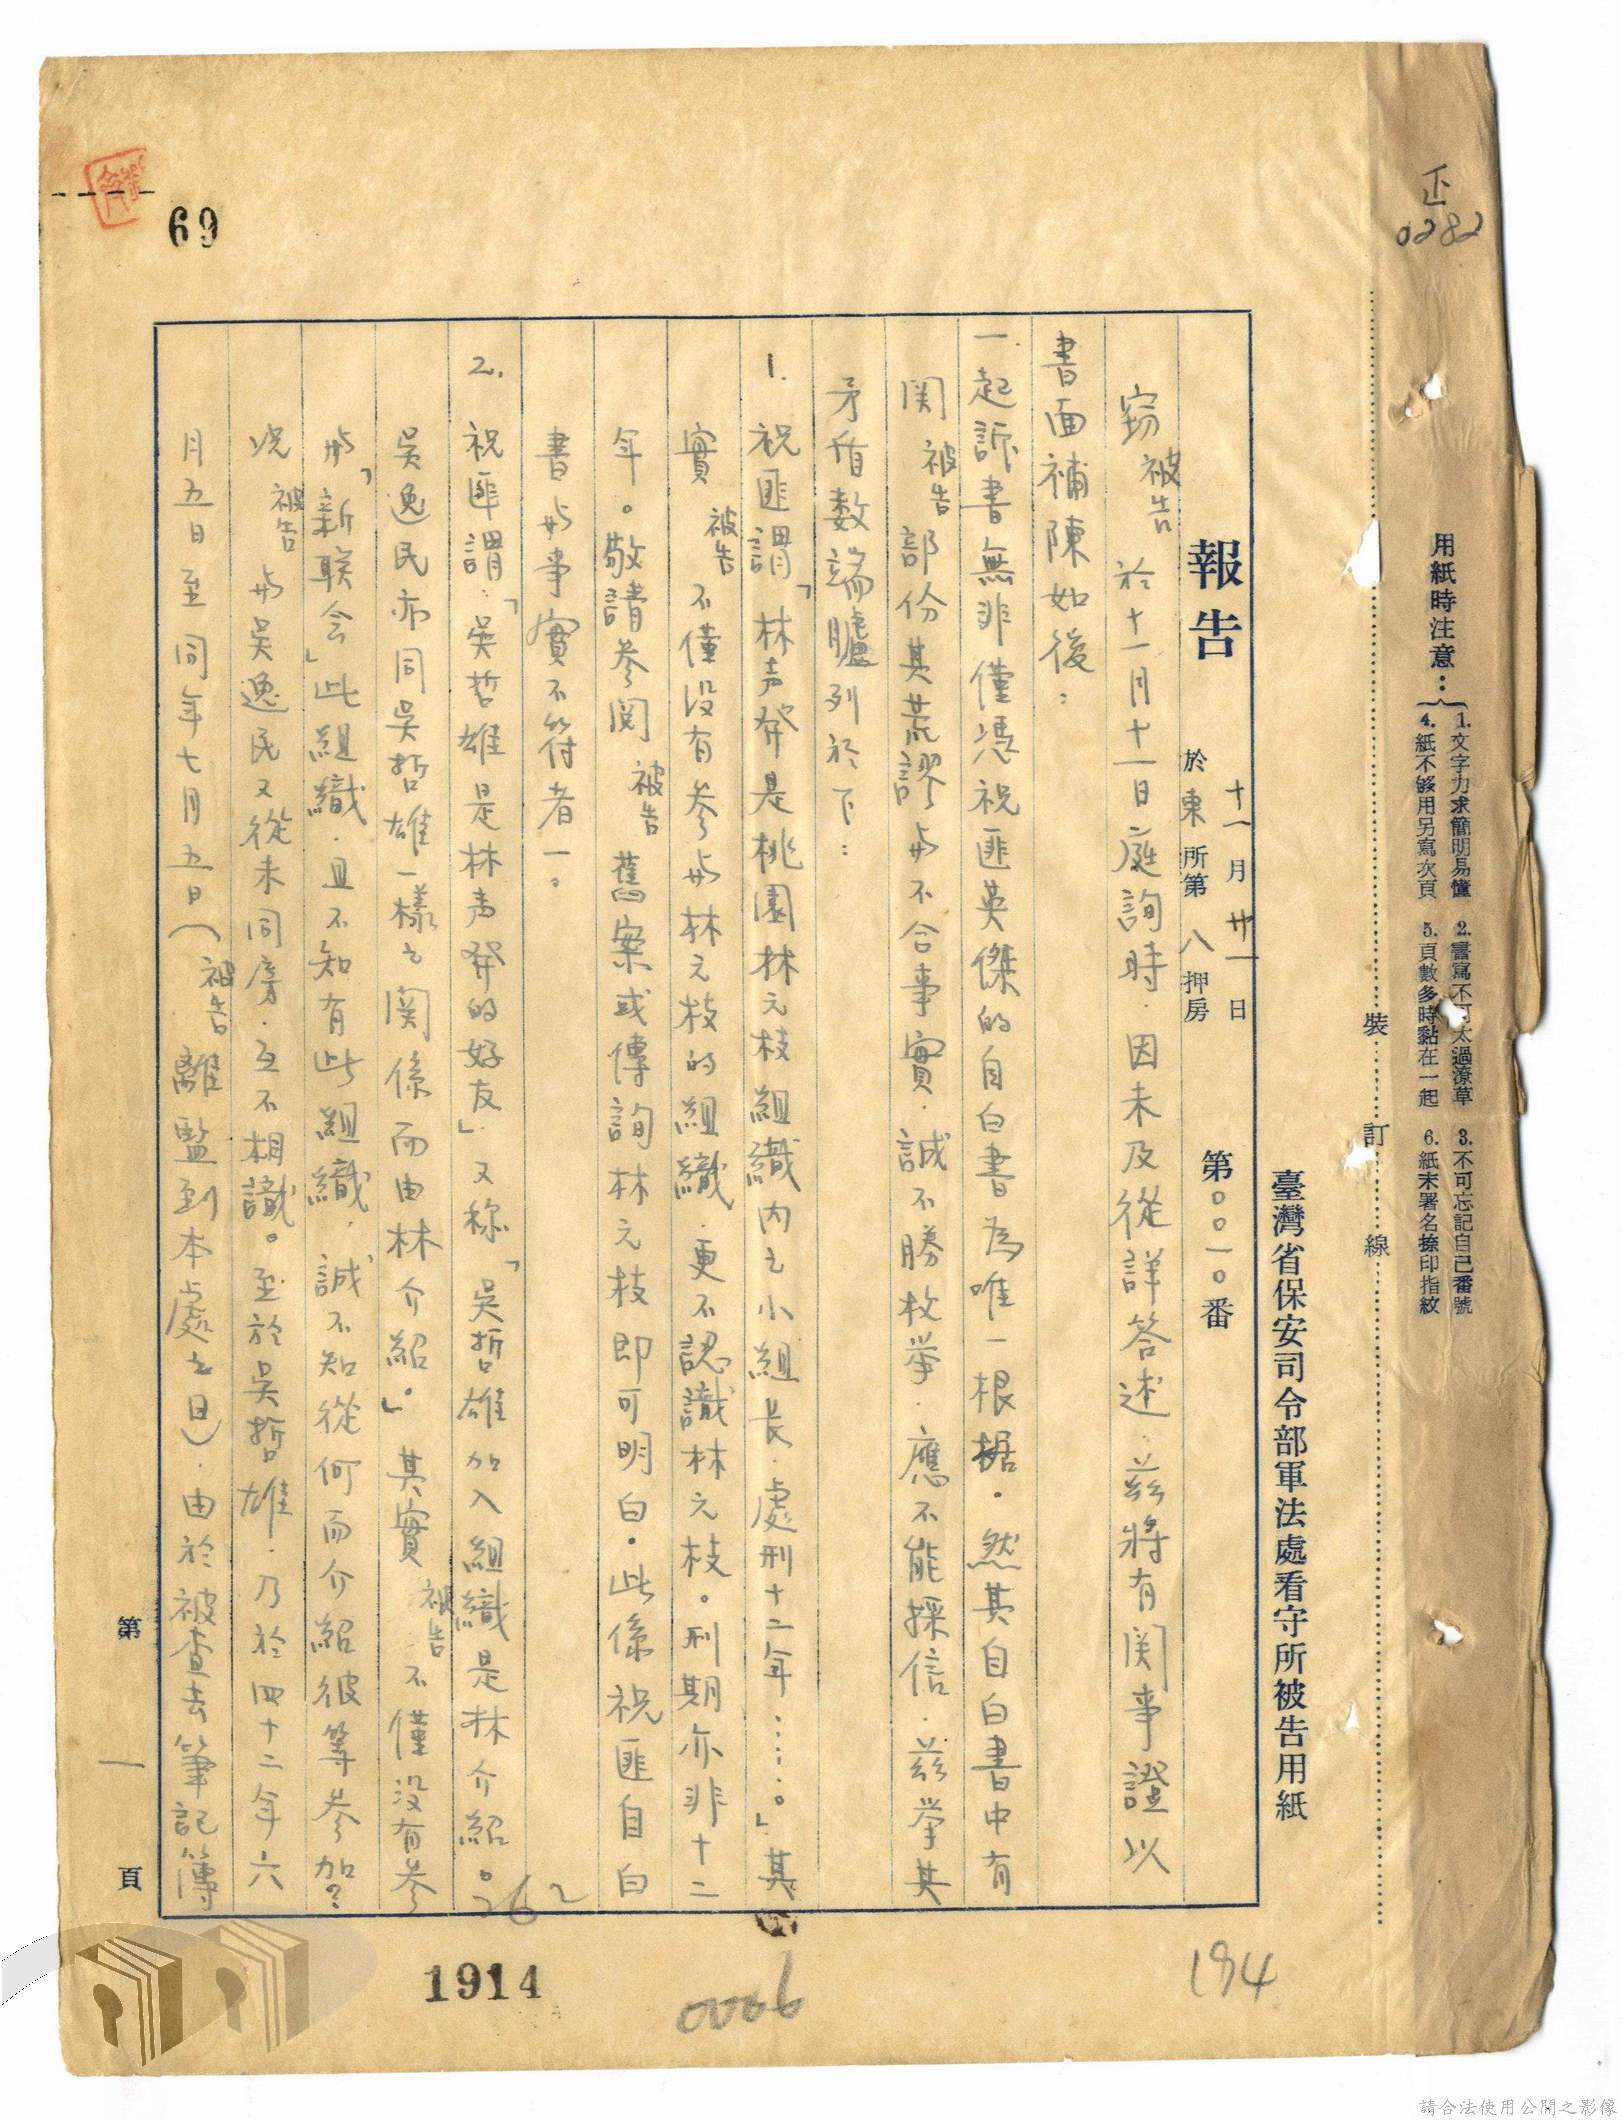 正
0282
用紙時注意：
1. 文字力求簡明易懂 2. 書寫不可太過潦草 3. 不可忘記自己番號
4. 紙不够用另寫次頁 5. 頁數多時黏在一起 6. 紙末署名捺印指紋
裝 訂 線
臺灣省保安司令部軍法處看守所被告用紙
報告 十一月廿一日
於東所第八押房 第〇〇一〇番
竊被告於十一月十一日庭詢時．因未及從詳答述．茲將有関事證以
書面補陳如後：
一．起訴書無非僅憑祝匪英傑的自白書為唯一根据。然其自白書中有
関被告部份其荒謬与不合事實．誠不勝枚挙．應不能採信．茲挙其
矛盾数端臚列於下：
1. 祝匪謂「林声発是桃園林元枝組織内之小組长．處刑十二年……。」其
實被告不僅没有参与林元枝的組織．更不認識林元枝。刑期亦非十二
年。敬請参閲被告舊案或傳詢林元枝即可明白。此係祝匪自白
書与事實不符者一。
2. 祝匪謂：「吳哲雄是林声発的好友」．又称「吳哲雄加入組織是林介紹。
吳逸民亦同吳哲雄一樣之関係而由林介紹」。其實被告不僅没有参
与「新联会」此組織．且不知有此組織，誠不知從何而介紹彼等参加？
况被告与吳逸民又從未同房．互不相識。至於吳哲雄．乃於四十二年六
月五日至同年七月五日（被告離監到本處之日）．由於被查去筆記簿
第一頁
69
262
1914
0006
194
請合法使用公開之影像